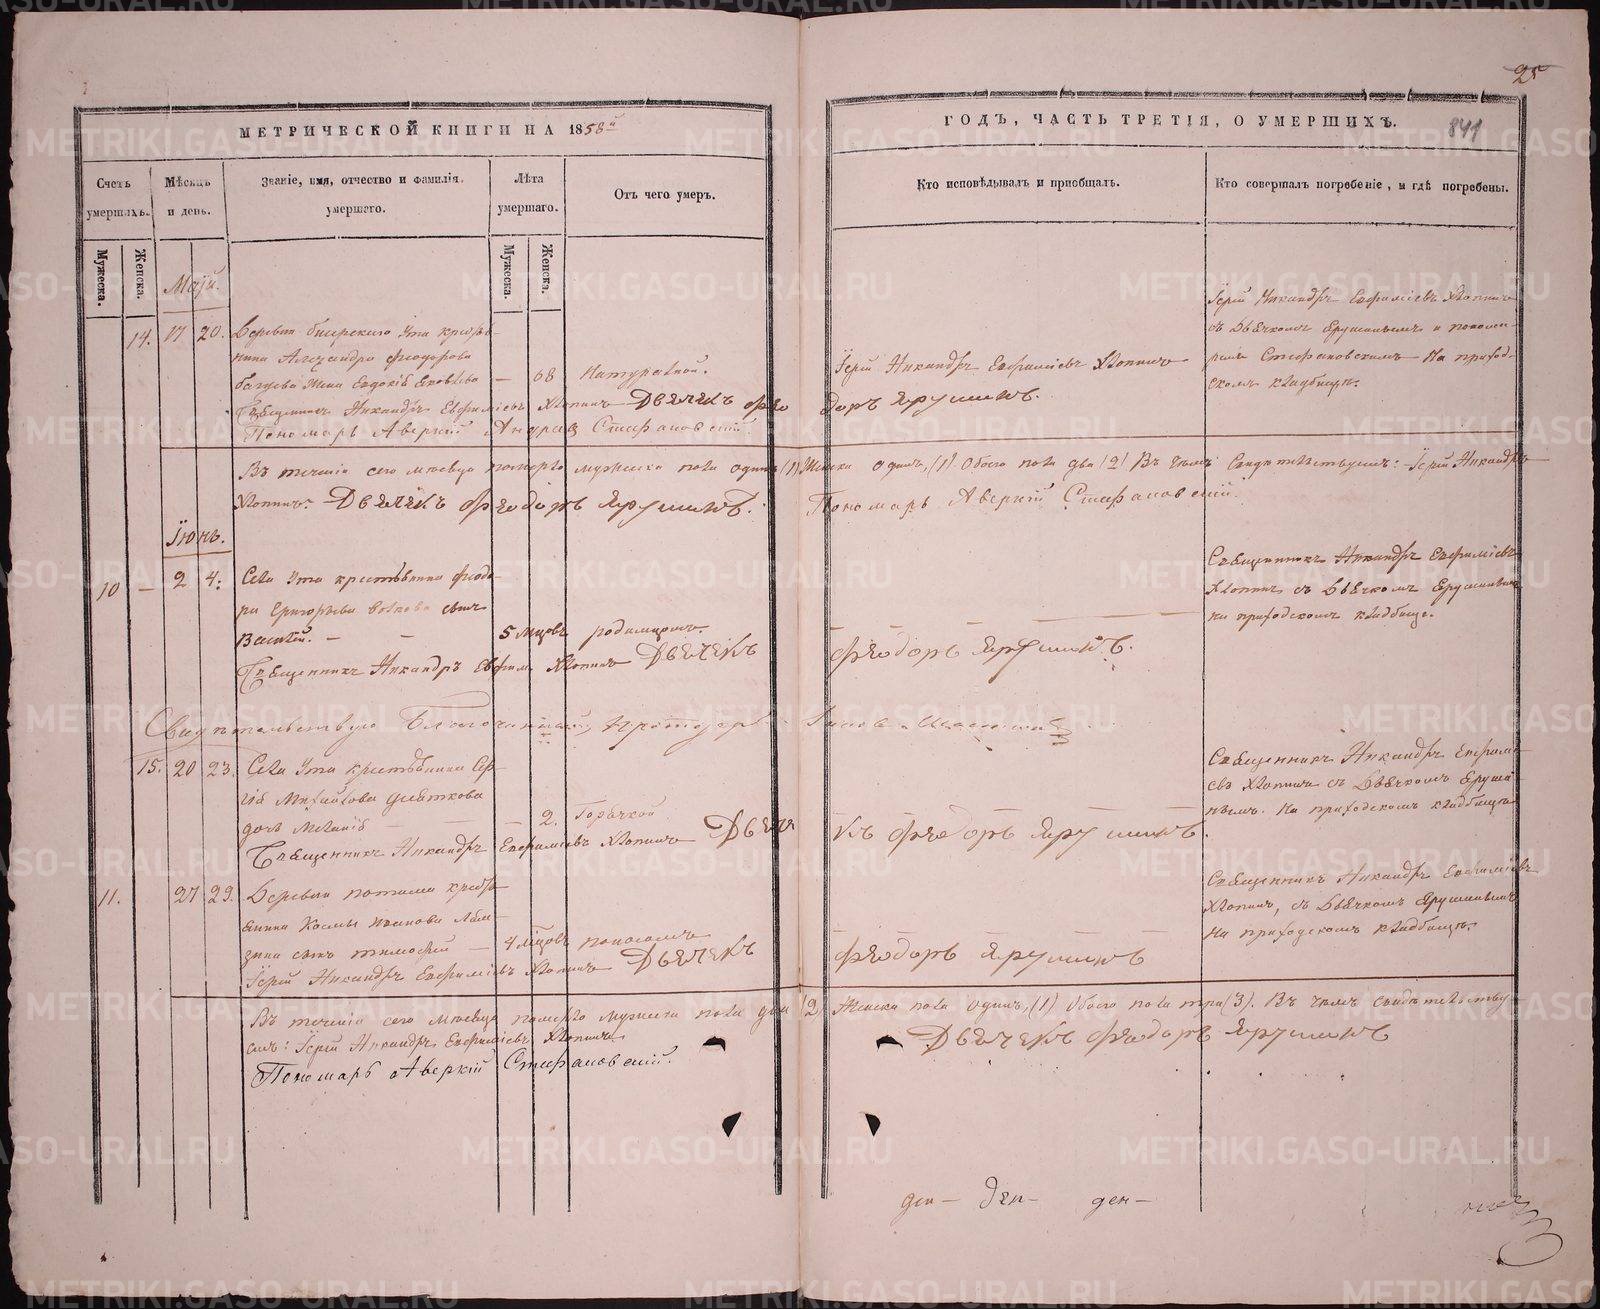 25
841
МЕТРИЧЕСКОЙ КНИГИ НА 1858й
ГОДЪ, ЧАСТЬ ТРЕТІЯ, О УМЕРШИХЪ.
Счетъ умершихъ.
Мѣсяцъ и день.
Званіе, имя, отчество и фамилія умершаго.
Лѣта умершаго.
Отъ чего умеръ.
Кто исповѣдывалъ и пріобщалъ.
Кто совершалъ погребеніе, и гдѣ погребены.
Мужеска.
Женска.
Мужеска.
Женска.
Маій.
14. 17 20. Деревни Бисерскаго Ута крестья-
нина Александра Феодорова
жена Евдокія Яковлева — 68 Натуральной.
Іерей Никандръ Евфиміевъ Хлопинъ
Іерей Никандръ Евфиміевъ Хлопинъ
съ Дьячкомъ Ярушинымъ и понома-
ремъ Стефановскимъ На приход-
скомъ кладбищѣ.
Священникъ Никандръ Евфиміевъ Хлопинъ Дьячекъ Фео доръ Ярушинъ.
Пономарь Аверкій Андреев Стефановскій.
Въ теченіи сего мѣсяца померло мужеска пола одинъ (1) Женска одинъ, (1) Обоего пола два (2) Въ чемъ Свидѣтельствуемъ: Іерей Никандръ
Хлопинъ. Дьячекъ Феодоръ Ярушинъ. Пономарь Аверкій Стефановскій.
Іюнь.
10 — 2 4. Села Ута крестьянина Феодо-
ра Григорьева Волкова сынъ
Василій. — — 5 мцовъ родимцомъ.
Священникъ Никандръ Евфиміевъ
Хлопинъ съ Дьячкомъ Ярушинымъ
на приходскомъ кладбищѣ.
Священникъ Никандръ Евфим. Хлопинъ Дьячекъ Феодоръ Ярушинъ.
Свидѣтельствую Благочинный, Протоіерей
15. 20 23. Села Ута крестьянина Сер-
гія Михайлова
дочь Меланія — — 2. Горячкой
Священникъ Никандръ Евфимі-
евъ Хлопинъ съ Дьячкомъ Яруши-
нымъ. На приходскомъ кладбищѣ
Священникъ Никандръ Евфиміевъ Хлопинъ Дьяче къ Феодоръ Ярушинъ.
11. 27 29. Деревни Потама кресть-
янина Космы Иванова Лям-
зина сынъ Тимофей — 4 мцовъ поносомъ
Священникъ Никандръ Евфиміевъ
Хлопинъ, съ Дьячкомъ Ярушинымъ
На приходскомъ кладбищѣ.
Іерей Никандръ Евфиміевъ Хлопинъ Дьячекъ Феодоръ Ярушинъ
Въ теченіи сего мѣсяца померло мужеска пола два (2) Женска пола одинъ, (1) Обоего пола три (3). Въ чемъ свидѣтельству-
емъ: Іерей Никандръ Евфиміевъ Хлопинъ Дьячекъ Феодоръ Ярушинъ
Пономарь Аверкій Стефановскій.
ден— ден— ден—
METRIKI.GASO-URAL.RU